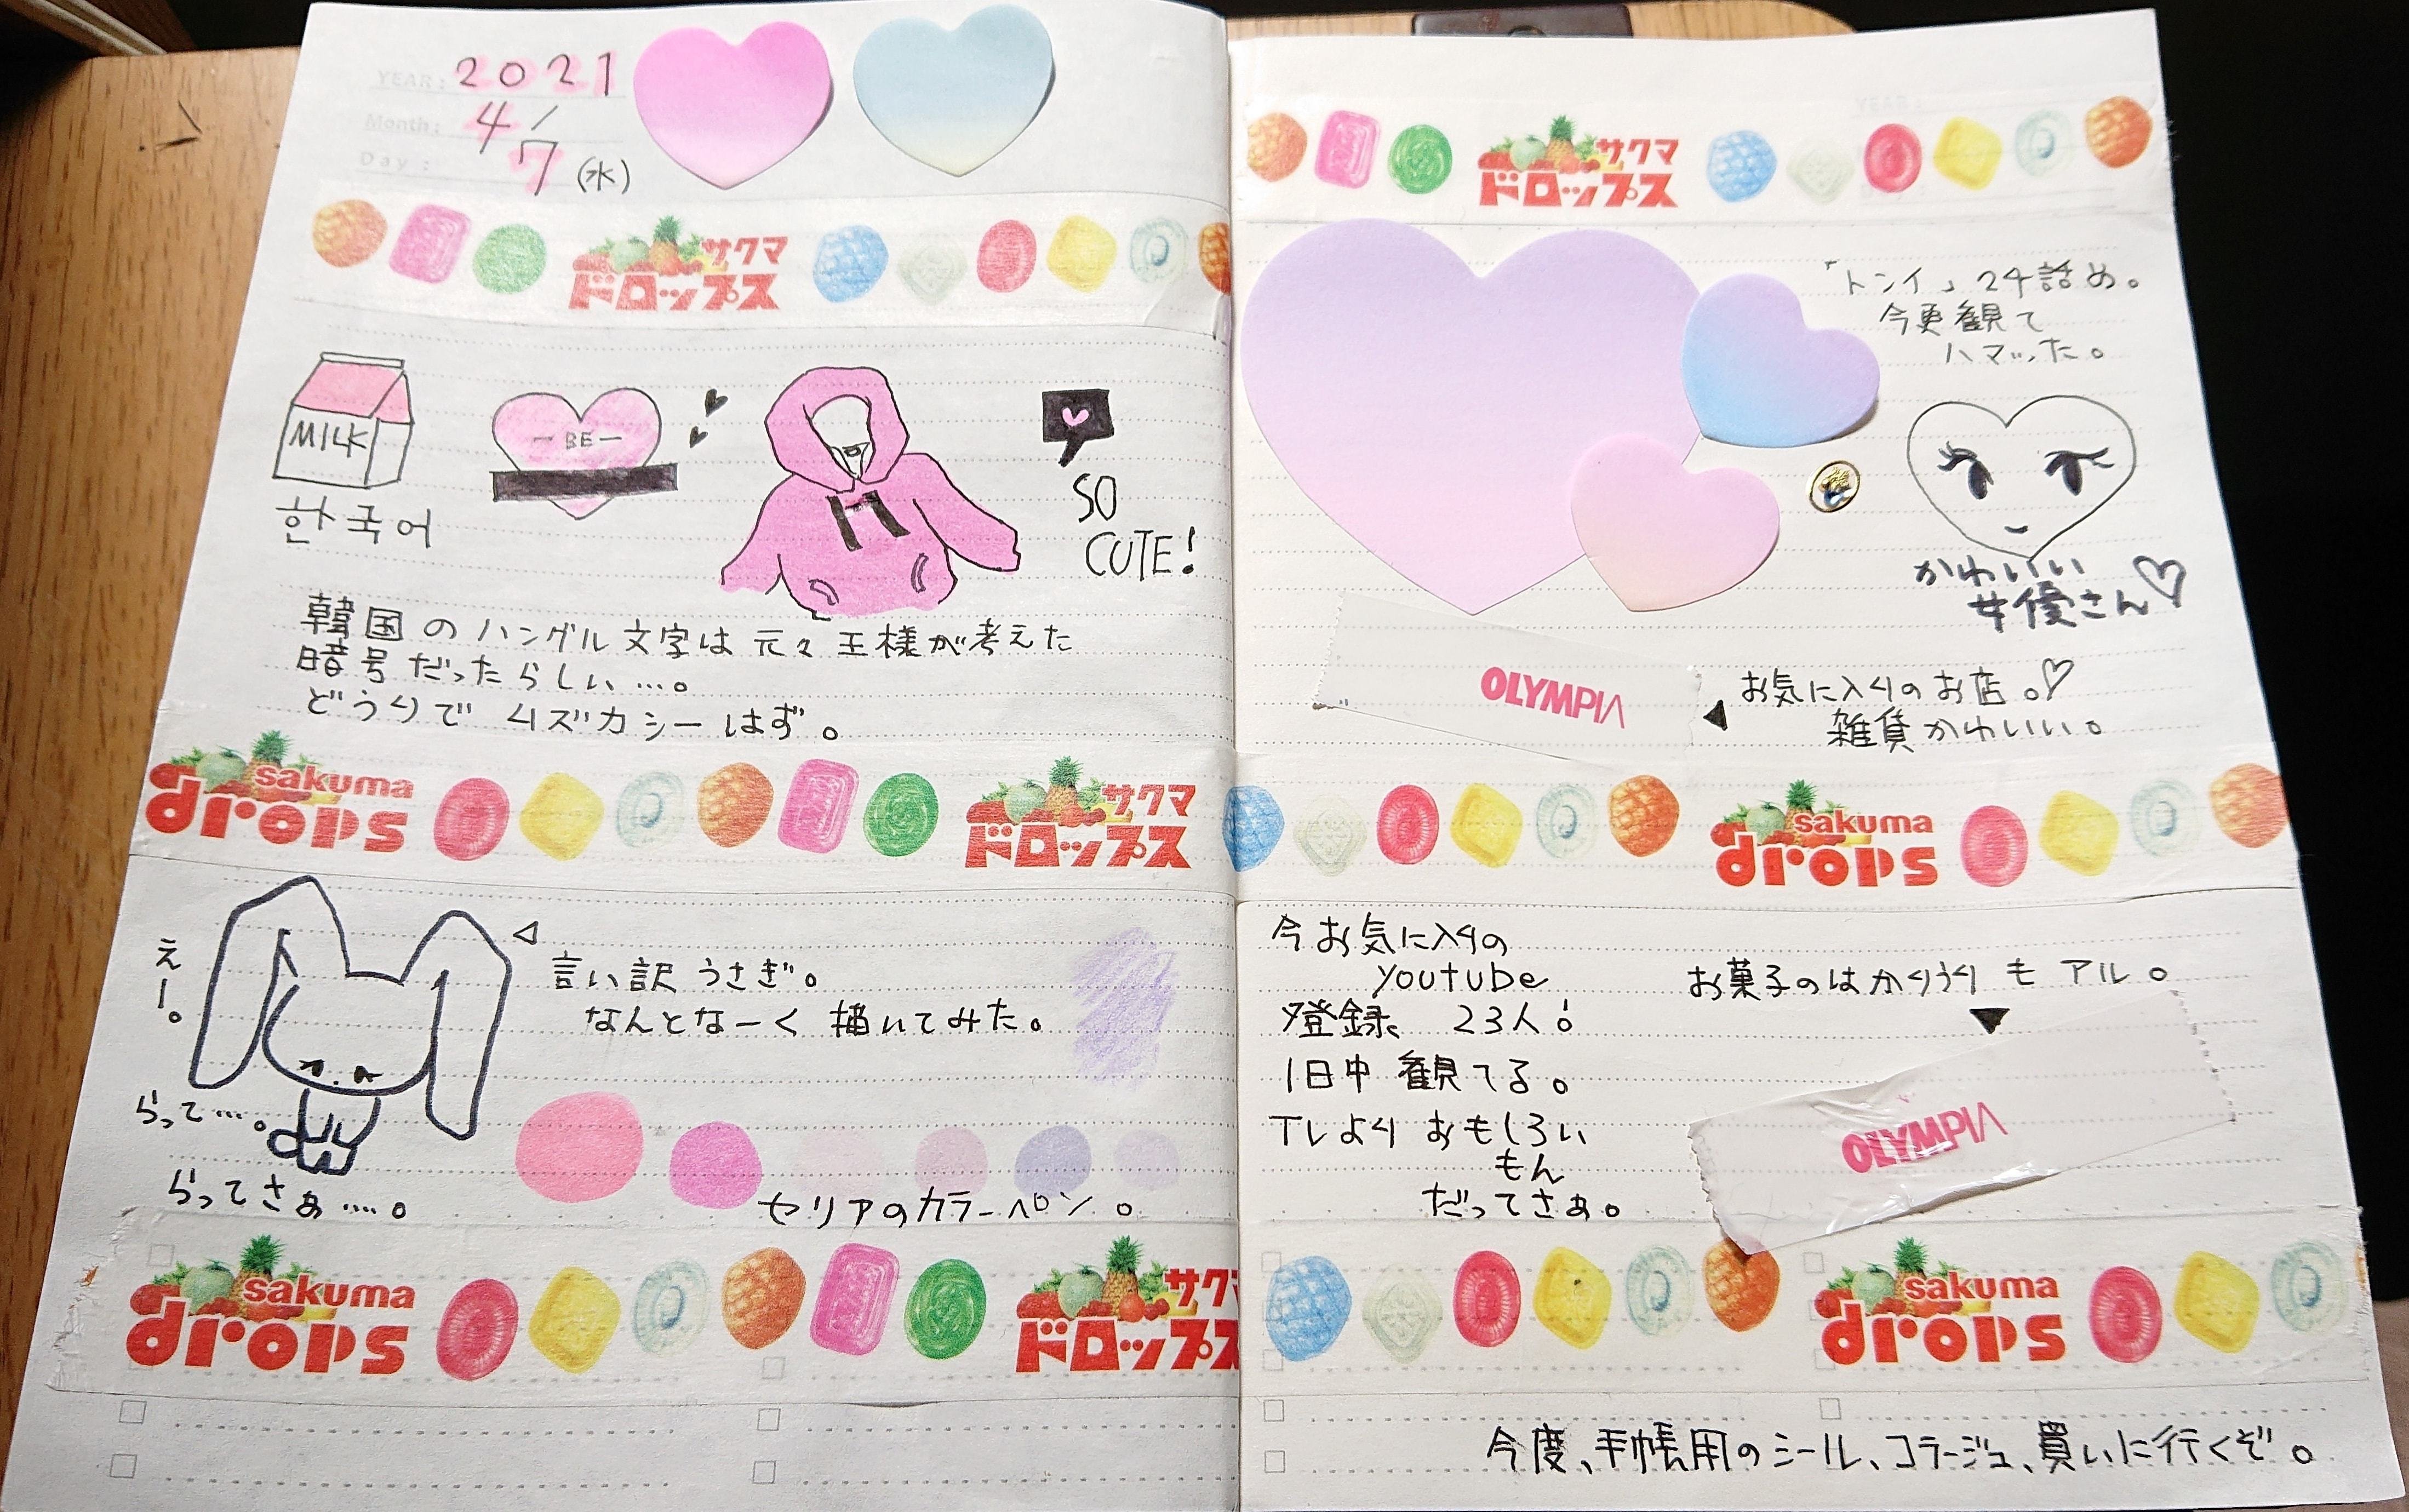 YEAR: 2021
Month: 4/
Day: 7 (水)
サクマ
ドロップス
MILK
한국어
BE
SO
CUTE!
韓国のハングル文字は元々王様が考えた
暗号だったらしい…。
どうりでムズカシーはず。
sakuma
drops
サクマ
ドロップス
えー。
言い訳うさぎ。
なんとなーく描いてみた。
らって…。
らってさぁ…。
セリアのカラーペン。
sakuma
drops
サクマ
ドロップス
サクマ
ドロップス
「トンイ」24話め。
今更観て
ハマった。
かわいい
女優さん♡
OLYMPIA
お気に入りのお店。♡
雑貨かわいい。
sakuma
drops
今お気に入りの
youtube
登録、23人!
1日中観てる。
TVよりおもしろい
もん
だってさぁ。
お菓子のはかりうりもアル。
OLYMPIA
sakuma
drops
今度、手帳用のシール、コラージュ、買いに行くぞ。